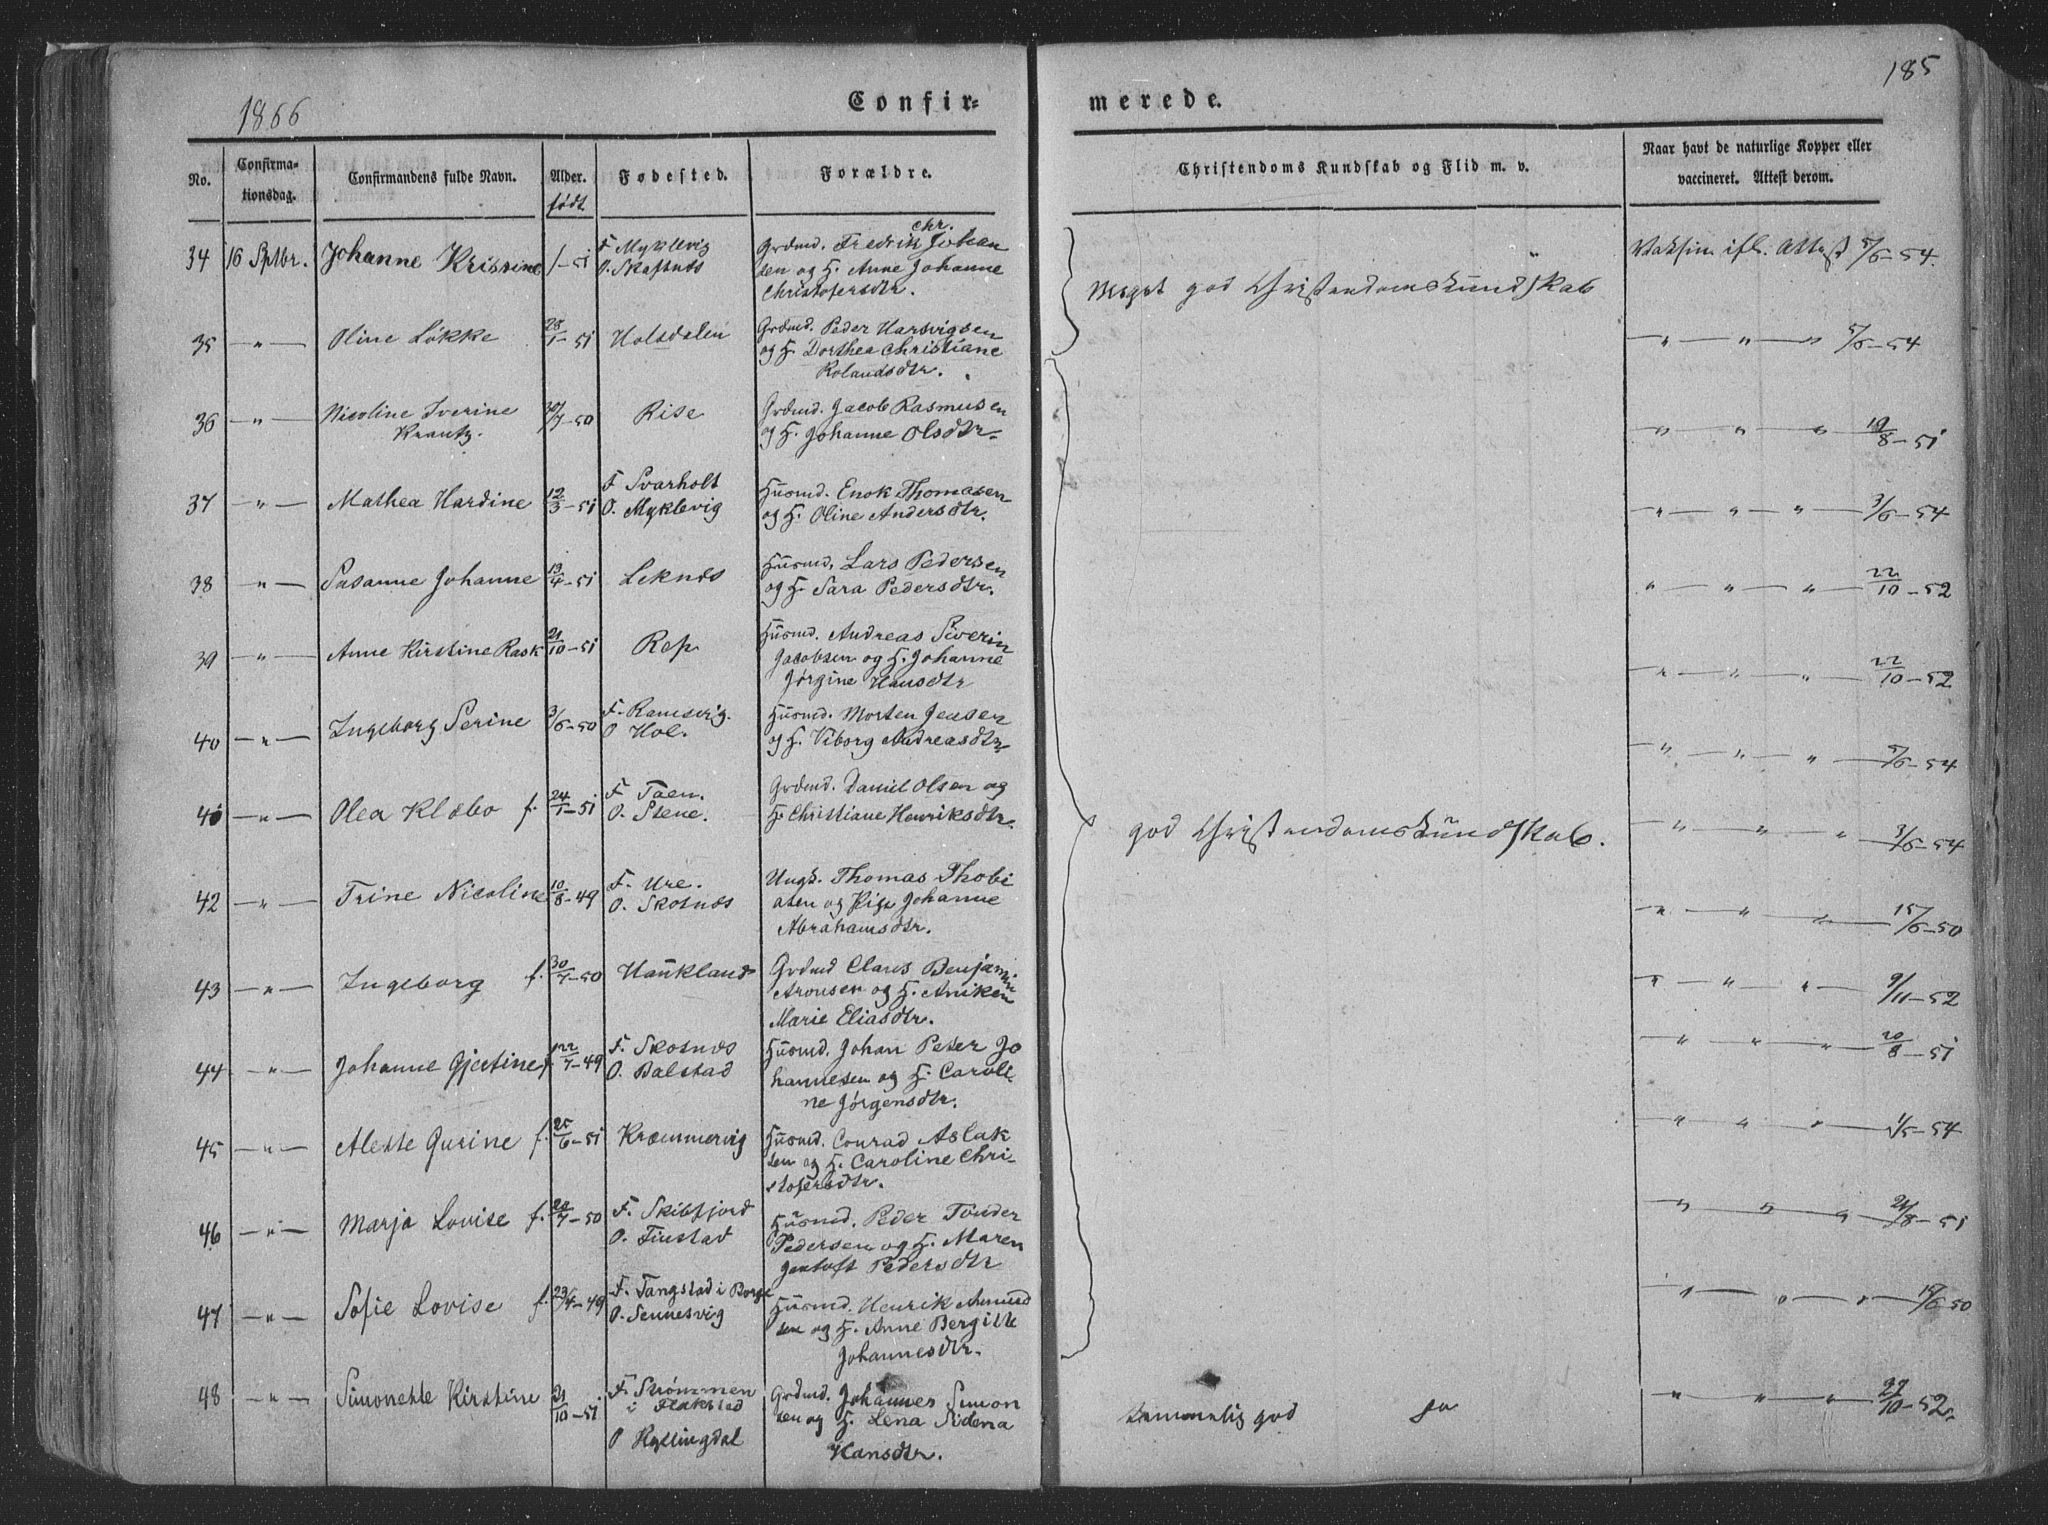 185
1866
Confir-
merede.
No.
Confirma-
tionsdag.
Confirmandens fulde Navn.
Alder.
født
Fødested.
Forældre.
Christendoms Kundskab og Flid m. v.
Naar havt de naturlige Kopper eller
vaccineret. Attest derom.
34 16 Sptbr. Johanne Kristine /-51
F Myklevig
O. Skaftnæs
chr.
Grdmd. Fredrik Johan
sen og H. Anne Johanne
Christofersdtr.
Meget god Christendomskundskab
Vaksin ifl. Attest 5/6-54.
35 -"- Oline Løkke 28/1-51 Holsdalen
Grdmd. Peder Hartvigsen
og H. Dorthea Christiane
Rolandsdtr.
" " " 5/6-54
36 -"- Nicoline Iverine
Krantz.
30/7-50 Rise
Grdmd. Jacob Rasmusen
og H. Johanne Olsdtr.
" " " 19/8-51
37 -"- Mathea Hardine 12/3-51
F Svarholt
O. Myklevig
Husmd. Enok Thomasen
og H. Oline Andersdtr.
" " " 3/6-54
38 -"- Susanne Johanne 13/4-51 Leknæs
Husmd. Lars Pedersen
og H. Sara Pedersdtr.
" " " 22/10-52
39 -"- Anne Kirstine Rask 21/10-51 Rep
Husmd. Andreas Siverin
Jacobsen og H. Johanne
Jørgine Hansdtr
" " " 22/10-52
40 -"- Ingeborg Serine 3/6-50
F. Ramsvig.
O Hol.
Husmd. Morten Jensen
og H. Viborg Andreasdtr.
" " " 5/6-54
41 -"- Olea Klæbo f. 24/1-51
F Taen.
O. Stene.
Grdmd. Daniel Olsen og
H. Christiane Henriksdtr.
god Christendomskundskab.
" " " 3/6-54
42 -"- Trine Nicoline 10/8-49
F. Ure.
O. Skotnæs
Ungk. Thomas Thobi
asen og Pige Johanne
Abrahamsdtr.
" " " 15/6-50
43 -"- Ingeborg f. 30/7-50 Haukland
Grdmd Claus Benjamin
Aronsen og H. Aniken
Marie Eliasdtr.
" " " 9/11-52
44 -"- Johanne Gjertine f 22/7-49
F. Skotnæs
O. Balstad
Husmd. Johan Peter Jo
hannesen og H. Caroli-
ne Jørgensdtr.
" " " 20/8-51
45 -"- Alette Gurine f. 25/6-51 Kræmmervig
Husmd. Conrad Aslak
sen og H. Caroline Chri-
stofersdtr.
" " " 1/5-54
46 -"- Marja Lovise f. 28/7-50
F. Skibfjord
O. Finstad
Husmd. Peder Tønder
Pedersen og H. Maren
Jentoft Pedersdtr
" " " 21/8-51
47 -"- Sofie Lovise f. 23/4-49
F. Tangstad i Borge
O. Sennesvig
Husmd. Henrik Amund
sen og H. Anne Bergitte
Johannesdtr.
" " " 14/6-50
48 -"- Simonette Kirstine 21/10-51
F. Strømmen
i Flakstad
O Ryllingdal
Grdmd. Johannes Simon
sen og H. Lena Sidena
Hansdtr.
temmelig god
" " " 22/10-52.